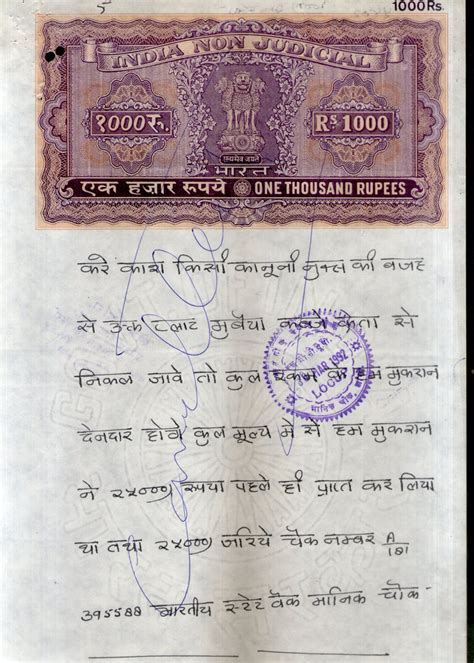 5
1000Rs.
INDIA NON JUDICIAL
१०००रु.
Rs 1000
सत्यमेव जयते
भारत
एक हजार रूपये ONE THOUSAND RUPEES
करे काश किसी कानूनी नुक्स की वजह
से उक्त प्लाट मुबैया कब्जे क्रेता से
निकल जावे तो कुल रकम के हम मुकरान
MAR 1992
देनदार होगे कुल मूल्य मे से हम मुकरान
ने २५०००) रूपया पहले ही प्राप्त कर लिया
था तथा २५०००) जरिये चैक नम्बर A/181
395588 भारतीय स्टेट बैंक मानिक चौक